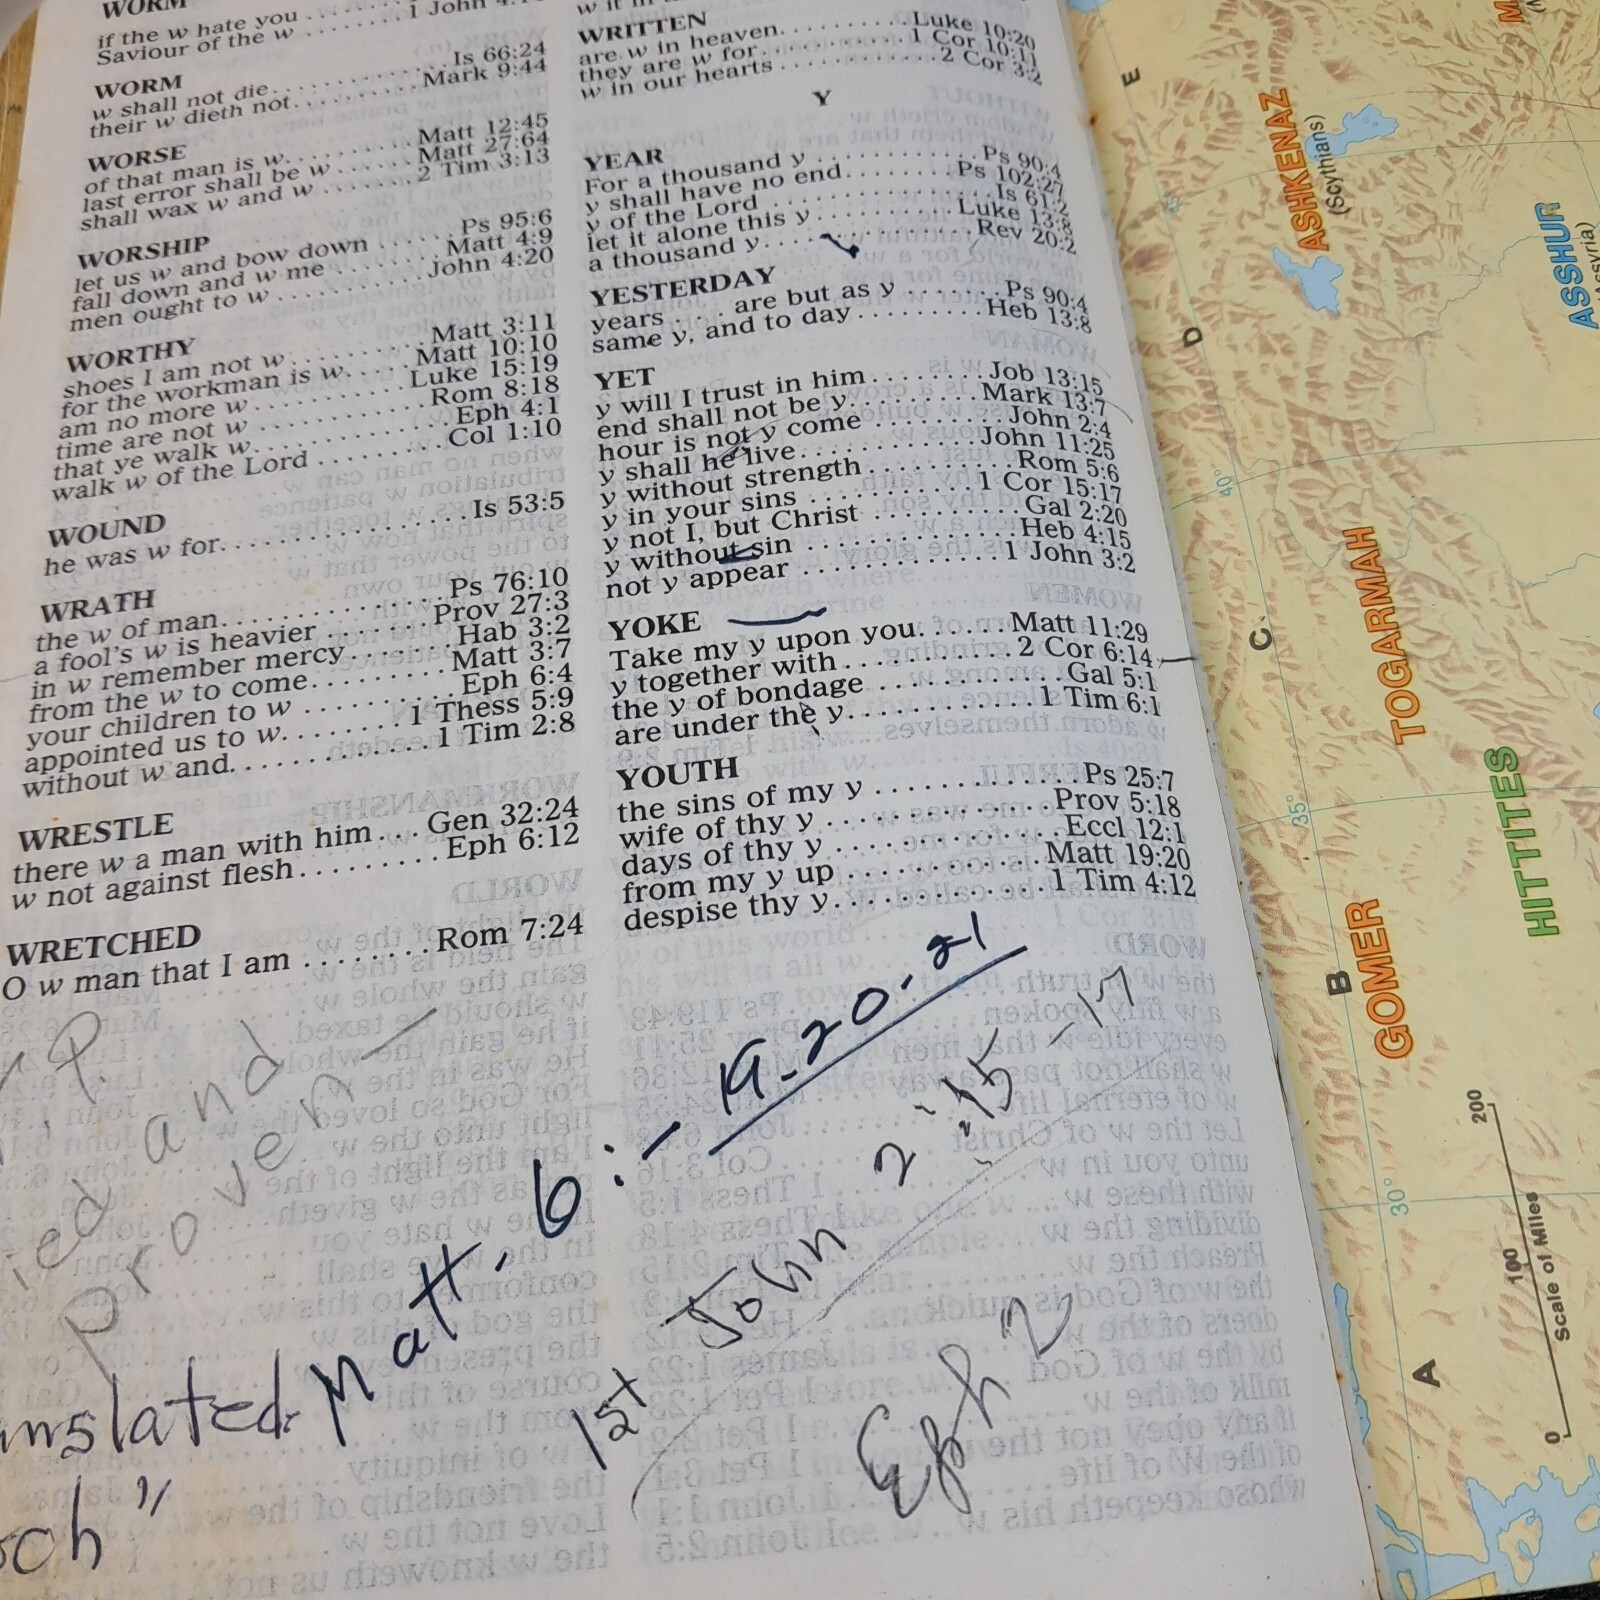 if the w hate you
Saviour of the w
WORM
w shall not die. . . . . . . . . . . . Is 66:24
their w dieth not. . . . . . . . . . Mark 9:44
WORSE
of that man is w. . . . . . . . . . Matt 12:45
last error shall be w . . . . . . Matt 27:64
shall wax w and w . . . . . . . 2 Tim 3:13
WORSHIP
let us w and bow down . . . . . . Ps 95:6
fall down and w me . . . . . . . . Matt 4:9
men ought to w . . . . . . . . . . John 4:20
WORTHY
shoes I am not w. . . . . . . . . . Matt 3:11
for the workman is w. . . . . Matt 10:10
am no more w . . . . . . . . . . Luke 15:19
time are not w . . . . . . . . . . . Rom 8:18
that ye walk w. . . . . . . . . . . . . Eph 4:1
walk w of the Lord . . . . . . . . . Col 1:10
WOUND
he was w for. . . . . . . . . . . . . . . Is 53:5
WRATH
the w of man. . . . . . . . . . . . . Ps 76:10
a fool's w is heavier . . . . . . . Prov 27:3
in w remember mercy. . . . . . . . Hab 3:2
from the w to come. . . . . . . . . Matt 3:7
your children to w . . . . . . . . . . Eph 6:4
appointed us to w. . . . . . . . 1 Thess 5:9
without w and. . . . . . . . . . . . 1 Tim 2:8
WRESTLE
there w a man with him. . . Gen 32:24
w not against flesh. . . . . . . . . Eph 6:12
WRETCHED
O w man that I am . . . . . . . . Rom 7:24
and
Proven
Matt. 6:- 19-20-21
1st John 2:15-17
Eph 2
WRITTEN
are w in heaven. . . . . . . . . . Luke 10:20
they are w for. . . . . . . . . . . 1 Cor 10:11
w in our hearts . . . . . . . . . . . 2 Cor 3:2
Y
YEAR
For a thousand y . . . . . . . . . . . Ps 90:4
y shall have no end. . . . . . . . Ps 102:27
y of the Lord . . . . . . . . . . . . . . Is 61:2
let it alone this y . . . . . . . . . . Luke 13:8
a thousand y. . . . . . . . . . . . . . Rev 20:2
YESTERDAY
years . . . are but as y . . . . . . . Ps 90:4
same y, and to day . . . . . . . . . Heb 13:8
YET
y will I trust in him. . . . . . . . Job 13:15
end shall not be y. . . . . . . . . Mark 13:7
hour is not y come . . . . . . . . John 2:4
y shall he live. . . . . . . . . . . . John 11:25
y without strength . . . . . . . . . . Rom 5:6
y in your sins . . . . . . . . . . . 1 Cor 15:17
y not I, but Christ . . . . . . . . . . Gal 2:20
y without sin . . . . . . . . . . . . . . Heb 4:15
not y appear . . . . . . . . . . . . . 1 John 3:2
YOKE
Take my y upon you. . . . . . Matt 11:29
y together with . . . . . . . . . . . 2 Cor 6:14
the y of bondage . . . . . . . . . . . Gal 5:1
are under the y. . . . . . . . . . . . 1 Tim 6:1
YOUTH
the sins of my y . . . . . . . . . . . . Ps 25:7
wife of thy y . . . . . . . . . . . . . Prov 5:18
days of thy y . . . . . . . . . . . . . Eccl 12:1
from my y up . . . . . . . . . . . Matt 19:20
despise thy y. . . . . . . . . . . . 1 Tim 4:12
E
D
C
B
A
ASHKENAZ
(Scythians)
ASSHUR
TOGARMAH
HITTITES
GOMER
40°
35°
30°
0 100 200
Scale of Miles